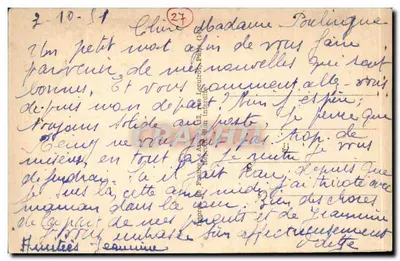 7-10-51 27
Chère Madame Poulingue
Un petit mot afin de vous faire
parvenir de mes nouvelles qui sont
bonnes. Et vous comment allez-vous
depuis mon départ, bien j'espère,
toujours solide au poste. Je pense que
ne vous fait pas trop de
misères, en tout cas Je
. Ici il fait beau, depuis que
Je suis là cette après midi j'ai tricoté avec
maman dans la cour. Bien des choses
de la part de mes parents et de Jeannine
vous embrasse bien affectueusement
Amitiés Jeannine Odette